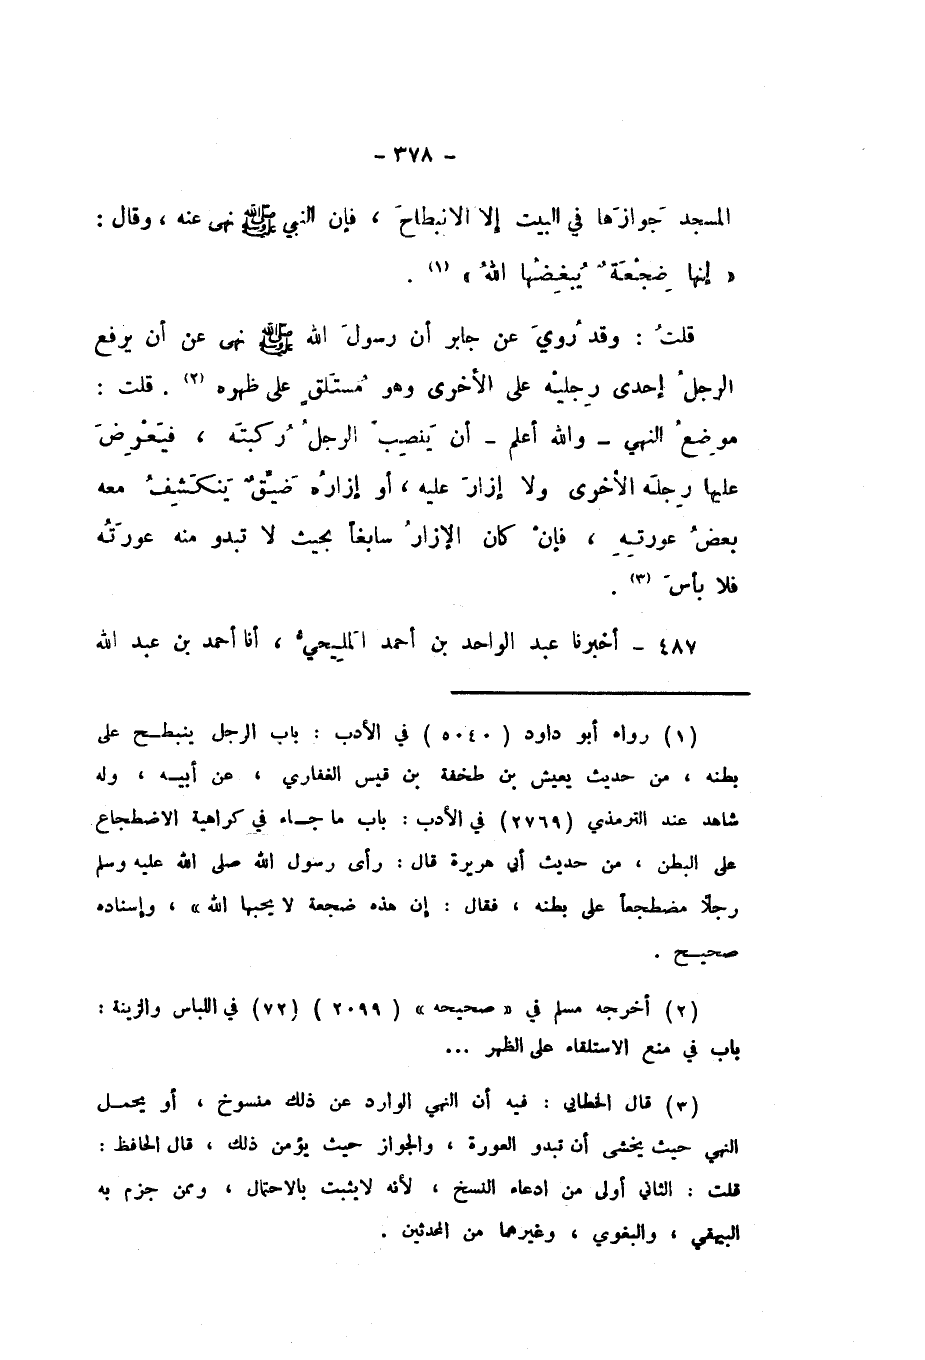 - ٣٧٨ -
المسجد جَوازَها في البيت إلا الانبطاحَ ، فإن النبي ﷺ نهى عنه ، وقال :
« إنها ضِجْعَةٌ يُبغِضُها اللهُ » (١) .
قلتُ : وقد رُويَ عن جابر أن رسولَ الله ﷺ نهى عن أن يرفع
الرجلُ إحدى رِجليْه على الأخرى وهو مُستَلقٍ على ظهره (٢) . قلت :
موضِعُ النهي – والله أعلم – أن يَنصِبَ الرجلُ رُكبتَه ، فيَعْرِضَ
عليها رِجلَه الأخرى ولا إزارَ عليه ، أو إزارُه ضَيِّقٌ يَنكَشِفُ معه
بعضُ عورتِهِ ، فإنْ كان الإزارُ سابغاً بحيث لا تبدو منه عورَتُه
فلا بأسَ (٣) .
٤٨٧ – أخبرنا عبد الواحد بن أحمد المَلِيحيُّ ، أنا أحمد بن عبد الله
(١) رواه أبو داود ( ٥٠٤٠ ) في الأدب : باب الرجل ينبطح على
بطنه ، من حديث يعيش بن طخفة بن قيس الغفاري ، عن أبيه ، وله
شاهد عند الترمذي (٢٧٦٩) في الأدب : باب ما جاء في كراهية الاضطجاع
على البطن ، من حديث أبي هريرة قال : رأى رسول الله صلى الله عليه وسلم
رجلًا مضطجعاً على بطنه ، فقال : إن هذه ضجعة لا يحبها الله » ، وإسناده
صحيح .
(٢) أخرجه مسلم في « صحيحه » ( ٢٠٩٩ ) (٧٢) في اللباس والزينة :
باب في منع الاستلقاء على الظهر ...
(٣) قال الخطابي : فيه أن النهي الوارد عن ذلك منسوخ ، أو يحمل
النهي حيث يخشى أن تبدو العورة ، والجواز حيث يؤمن ذلك ، قال الحافظ :
قلت : الثاني أولى من ادعاء النسخ ، لأنه لايثبت بالاحتمال ، وممن جزم به
البيهقي ، والبغوي ، وغيرهما من المحدثين .